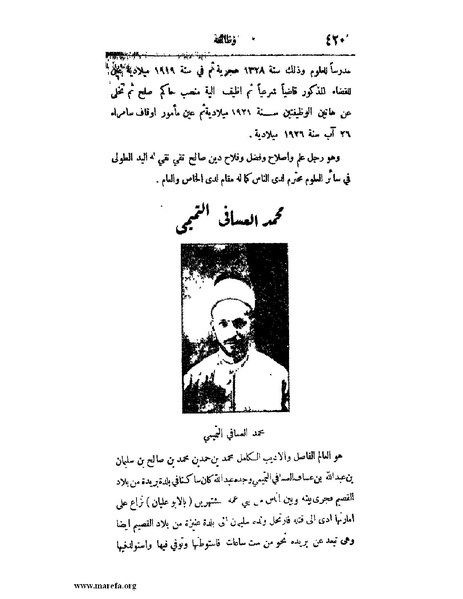 ٤٢٠
وظائفه
مدرساً للعلوم وذلك سنة ١٣٢٨ هجرية ثم في سنة ١٩١٩ ميلادية
للقضاء المذكور قاضياً شرعياً ثم اضيف اليه منصب حاكم صلح ثم تخلى
عن هاتين الوظيفتين سنة ١٩٢١ ميلادية ثم عين مأمور اوقاف سامراء
٢٦ آب سنة ١٩٢٦ ميلادية .
وهو رجل علم واصلاح وفضل وفلاح دين صالح تقي نقي له اليد الطولى
في سائر العلوم محترم لدى الناس كما له مقام لدى الخاص والعام .
محمد العسافي التميمي
محمد العسافي التميمي
هو العالم الفاضل والاديب الكامل محمد بن حمد بن محمد بن صالح بن سليمان
بن عبدالله بن عساف العسافي التميمي وجده عبدالله كان ساكنا في بلدة بريدة من بلاد
القصيم فجرى بينه وبين اناس من بني عمه مشتهرين ( بالابو عليان ) نزاع على
امارتها ادى الى قتله فارتحل ولده سليمان الى بلدة عنيزة من بلاد القصيم ايضا
وهي تبعد عن بريده نحو من ست ساعات فاستوطنها وتوفي فيها واستولد فيها
www.marefa.org